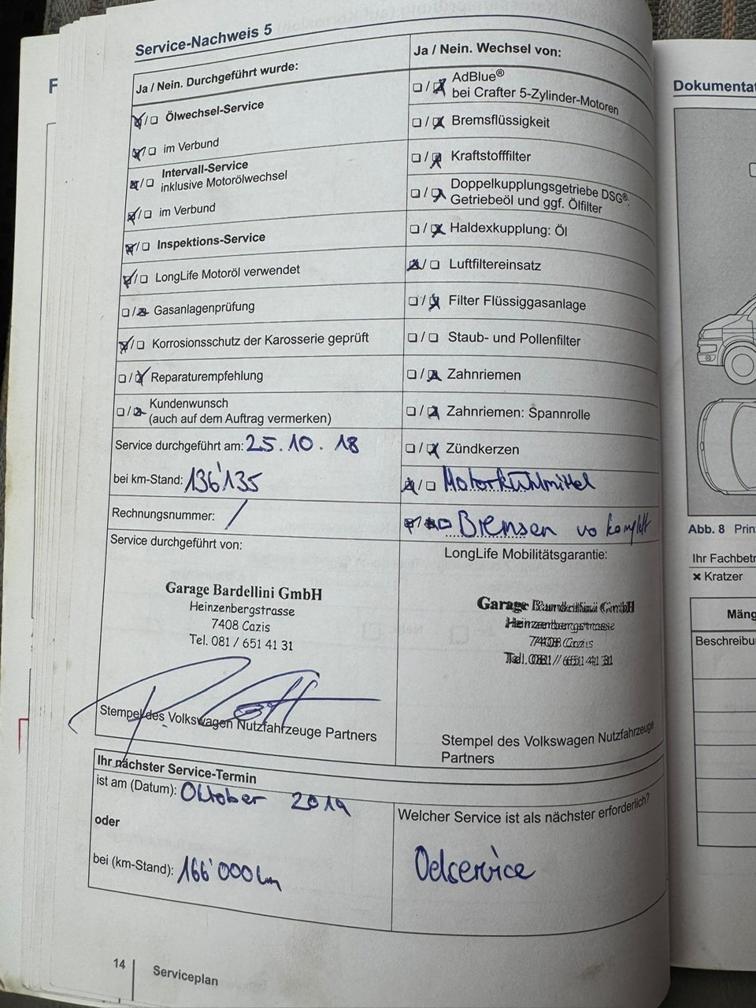 Service-Nachweis 5
Ja / Nein. Durchgeführt wurde:
Ölwechsel-Service
im Verbund
Intervall-Service
inklusive Motorölwechsel
im Verbund
Inspektions-Service
LongLife Motoröl verwendet
Gasanlagenprüfung
Korrosionsschutz der Karosserie geprüft
Reparaturempfehlung
Kundenwunsch
(auch auf dem Auftrag vermerken)
Service durchgeführt am: 25.10.18
bei km-Stand: 136'135
Rechnungsnummer: /
Service durchgeführt von:
Garage Bardellini GmbH
Heinzenbergstrasse
7408 Cazis
Tel. 081 / 651 41 31
Stempel des Volkswagen Nutzfahrzeuge Partners
Ja / Nein. Wechsel von:
AdBlue®
bei Crafter 5-Zylinder-Motoren
Bremsflüssigkeit
Kraftstofffilter
Doppelkupplungsgetriebe DSG®:
Getriebeöl und ggf. Ölfilter
Haldexkupplung: Öl
Luftfiltereinsatz
Filter Flüssiggasanlage
Staub- und Pollenfilter
Zahnriemen
Zahnriemen: Spannrolle
Zündkerzen
Motorkühlmittel
Bremsen vo komplett
LongLife Mobilitätsgarantie:
Garage Bardellini GmbH
Heinzenbergstrasse
7408 Cazis
Tel. 081 / 651 41 31
Stempel des Volkswagen Nutzfahrzeuge
Partners
Ihr nächster Service-Termin
ist am (Datum): Oktober 2019
oder
bei (km-Stand): 166'000 km
Welcher Service ist als nächster erforderlich?
Oelservice
14
Serviceplan
F
Dokumentat
Abb. 8 Prin
Ihr Fachbetr
× Kratzer
Mäng
Beschreibu